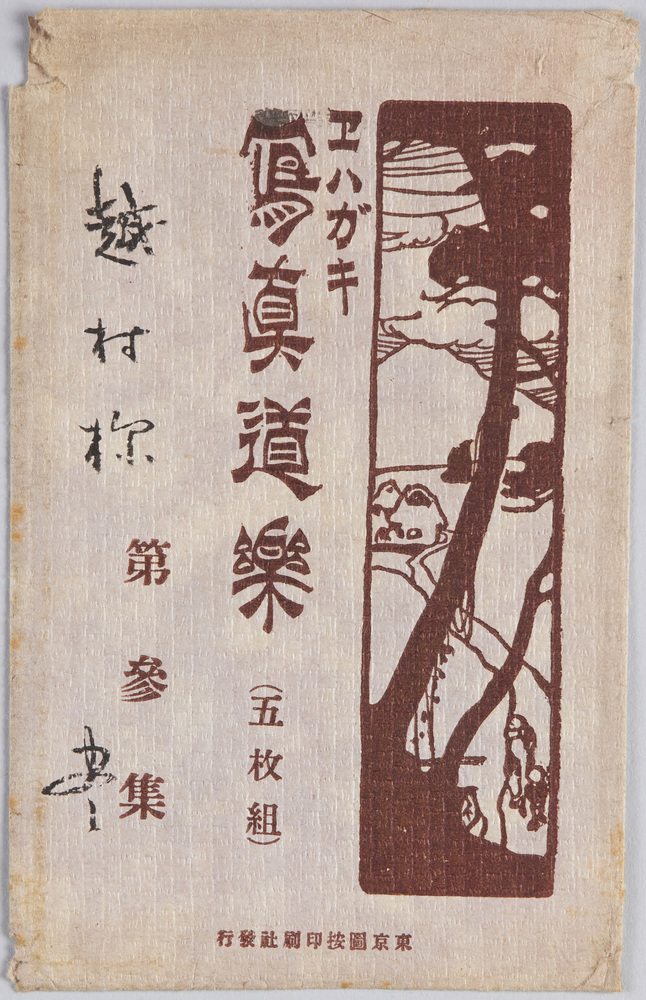 エハガキ
寫眞道樂
(五枚組)
第參集
越村
東京圖按印刷社發行